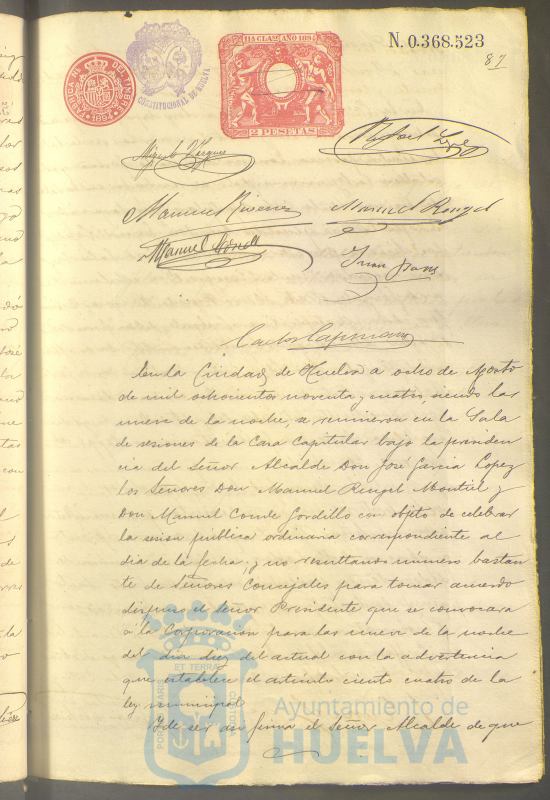 N. 0.368.523
87
HACI.ª Pᶜᵃ AÑO 1894
FABRICA Nˡ DEL TIMBRE
1894
CONSTITUCIONAL DE HUELVA
2 PESETAS
Rafael
Manuel Manuel Rengel
Manuel Conde
Juan
Carlos
En la Ciudad de Huelva a ocho de Agosto
de mil ochocientos noventa y cuatro, siendo las
nueve de la noche, se reunieron en la Sala
de sesiones de la Casa Capitular bajo la presiden
cia del Señor Alcalde Don José Garcia Lopez
los Señores Don Manuel Rengel Montiel y
Don Manuel Conde Gordillo con objeto de celebrar
la sesion publica ordinaria correspondiente al
dia de la fecha; y no resultando número bastan
te de Señores Concejales para tomar acuerdo
dispuso el Señor Presidente que se convocara
á la Corporacion para las nueve de la noche
del dia diez del actual con la advertencia
que establece el articulo ciento cuatro de la
ley municipal
Y de ser asi firma el Señor Alcalde de que
PORTUS MARIS ET TERRAE CUSTODIA
Ayuntamiento de
HUELVA